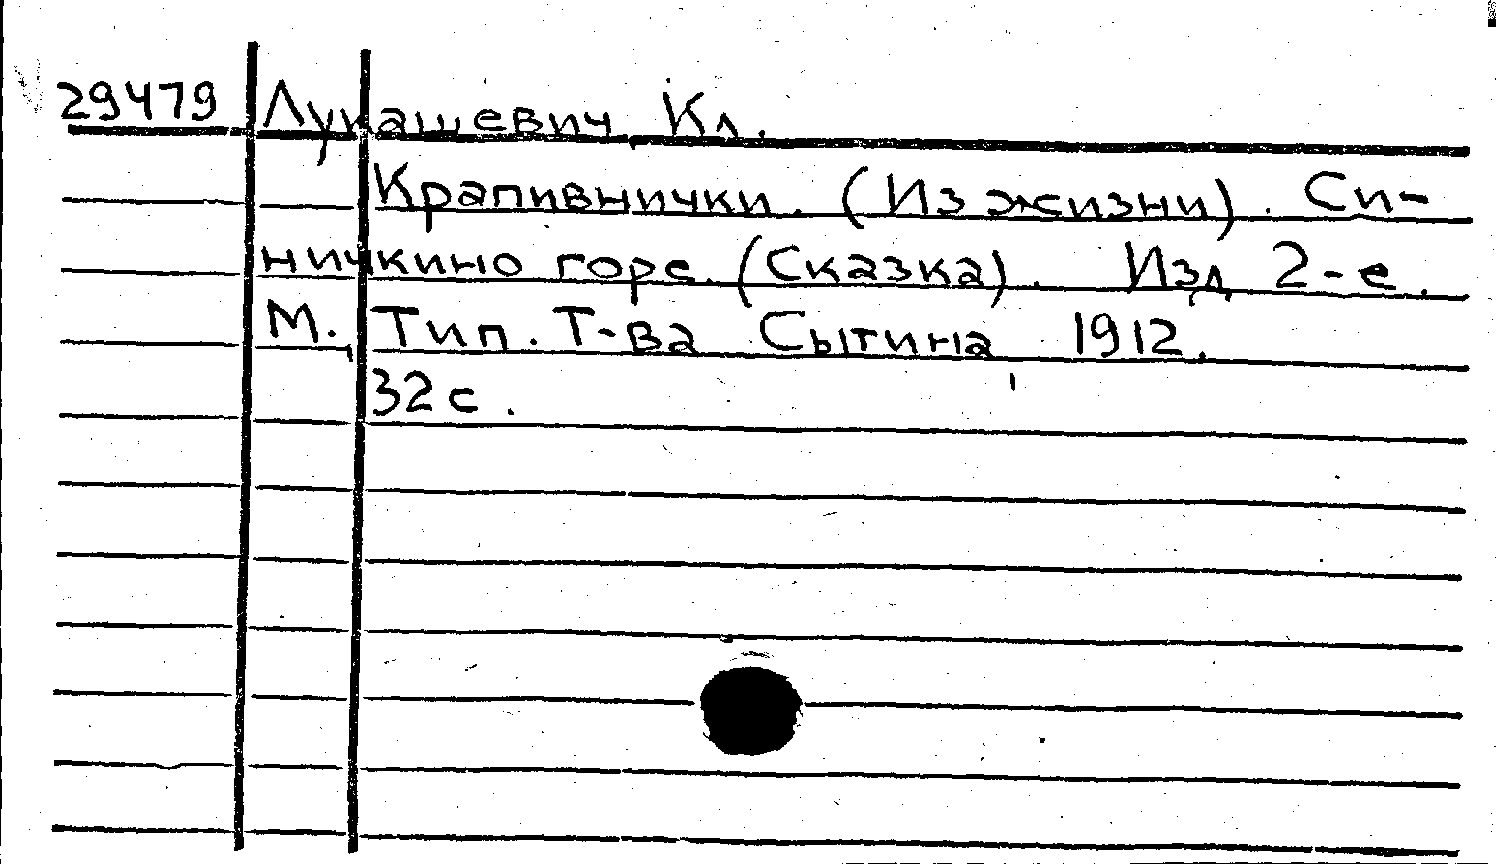 29479 Лукашевич Кл.
Крапивнички. (Из жизни). Си-
ничкино горе. (Сказка). Изд 2-е.
М., Тип. Т-ва Сытина 1912.
32 с.